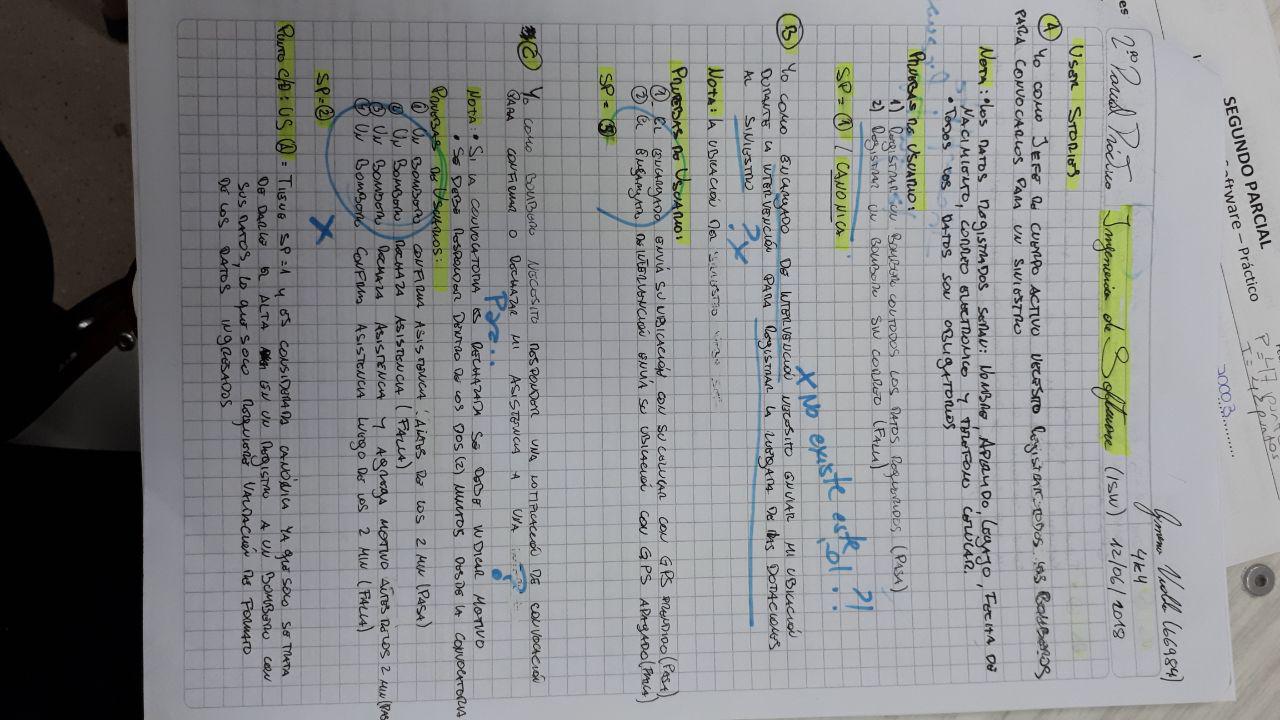 SEGUNDO PARCIAL
Software – Práctico
Germán Vialle (66984)
4K4
2do Parcial Práctico Ingeniería de Software (ISW) 12/06/2018
USER STORIES
A Yo como JEFE DE CUERPO ACTIVO NECESITO REGISTRAR TODOS LOS BOMBEROS
PARA CONVOCARLOS PARA UN SINIESTRO
NOTA: • LOS DATOS REGISTRADOS SERÁN: NOMBRE, APELLIDO, LEGAJO, FECHA DE
NACIMIENTO, CORREO ELECTRÓNICO Y TELÉFONO CELULAR
• TODOS LOS DATOS SON OBLIGATORIOS
PRUEBAS DE USUARIO:
1) REGISTRAR UN BOMBERO CON TODOS LOS DATOS REQUERIDOS (PASA)
2) REGISTRAR UN BOMBERO SIN CORREO (FALLA)
SP = 1 / CANÓNICA
X No existe este rol ?!
B Yo como ENCARGADO DE INTERVENCIÓN NECESITO ENVIAR MI UBICACIÓN
DURANTE LA INTERVENCIÓN PARA REGISTRAR LA LLEGADA DE LAS DOTACIONES
AL SINIESTRO ?X
NOTA: LA UBICACIÓN DEL SINIESTRO
PRUEBAS DE USUARIO:
1 EL ENCARGADO ENVÍA SU UBICACIÓN CON SU CELULAR CON GPS PRENDIDO (PASA)
2 EL ENCARGADO DE INTERVENCIÓN ENVÍA SU UBICACIÓN CON GPS APAGADO (FALLA)
SP = 3
C Yo como BOMBERO NECESITO RESPONDER UNA NOTIFICACIÓN DE CONVOCACIÓN
PARA CONFIRMAR O RECHAZAR MI ASISTENCIA A UNA
Para..
?
NOTA: • SI LA CONVOCATORIA ES RECHAZADA SE DEBE INDICAR MOTIVO
• SE DEBE RESPONDER DENTRO DE LOS DOS (2) MINUTOS DESDE LA CONVOCATORIA
PRUEBAS DE USUARIOS:
UN BOMBERO CONFIRMA ASISTENCIA ANTES DE LOS 2 MIN (PASA)
UN BOMBERO RECHAZA ASISTENCIA (FALLA)
UN BOMBERO RECHAZA ASISTENCIA Y AGREGA MOTIVO ANTES DE LOS 2 MIN (PASA
UN BOMBERO CONFIRMA ASISTENCIA LUEGO DE LOS 2 MIN (FALLA)
SP = 2
X
PUNTO c/A: US A = TIENE SP = 1 Y ES CONSIDERADA CANÓNICA YA QUE SOLO SE TRATA
DE DARLE EL ALTA EN UN REGISTRO A UN BOMBERO CON
SUS DATOS, LO QUE SOLO REQUIERE VALIDACIÓN DE FORMATO
DE LOS DATOS INGRESADOS